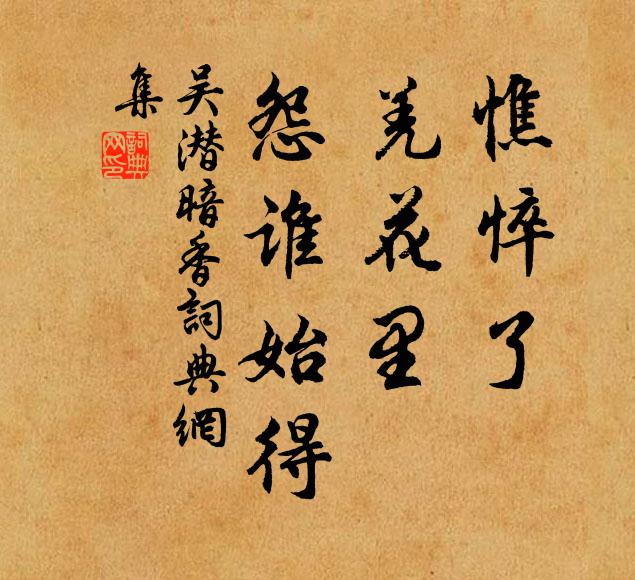 憔悴了
羌花里
怨谁始得
吴潜暗香詞典網
集
詞典
网印